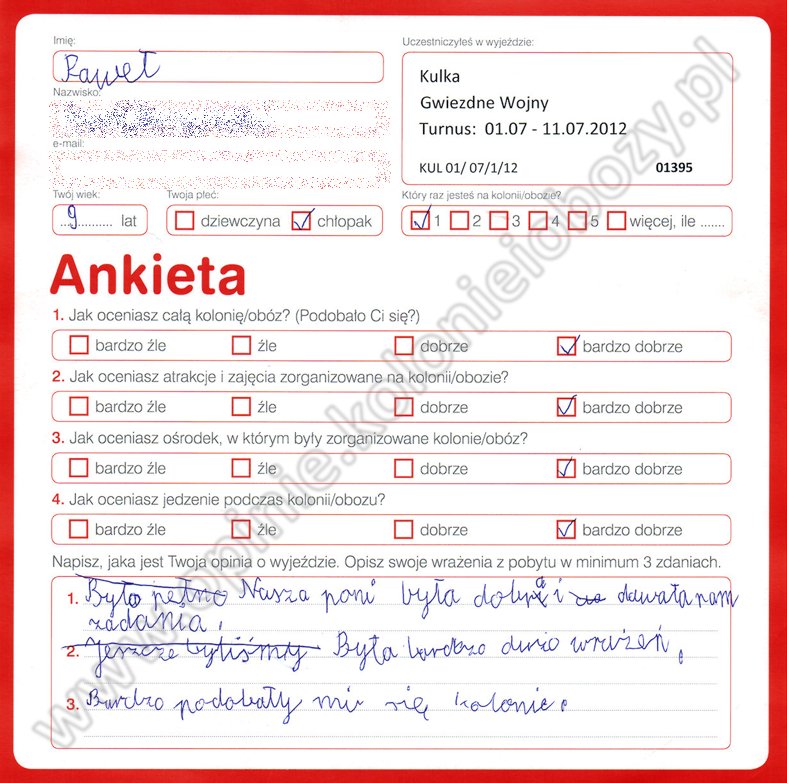 Imię:
Paweł
Uczestniczyłeś w wyjeździe:
Kulka
Gwiezdne Wojny
Turnus: 01.07 - 11.07.2012
KUL 01/ 07/1/12 01395
Nazwisko:
e-mail:
Twój wiek:
9 lat
Twoja płeć:
dziewczyna chłopak
Który raz jesteś na kolonii/obozie?
1 2 3 4 5 więcej, ile .......
Ankieta
1. Jak oceniasz całą kolonię/obóz? (Podobało Ci się?)
bardzo źle źle dobrze bardzo dobrze
2. Jak oceniasz atrakcje i zajęcia zorganizowane na kolonii/obozie?
bardzo źle źle dobrze bardzo dobrze
3. Jak oceniasz ośrodek, w którym były zorganizowane kolonie/obóz?
bardzo źle źle dobrze bardzo dobrze
4. Jak oceniasz jedzenie podczas kolonii/obozu?
bardzo źle źle dobrze bardzo dobrze
Napisz, jaka jest Twoja opinia o wyjeździe. Opisz swoje wrażenia z pobytu w minimum 3 zdaniach.
1. Było pełno Nasza pani była dobra i dawała nam
zadania.
2. Jeszcze byliśmy Była bardzo dużo wrażeń.
3. Bardzo podobały mi się kolonie.
www.opinie.kolonieiobozy.pl